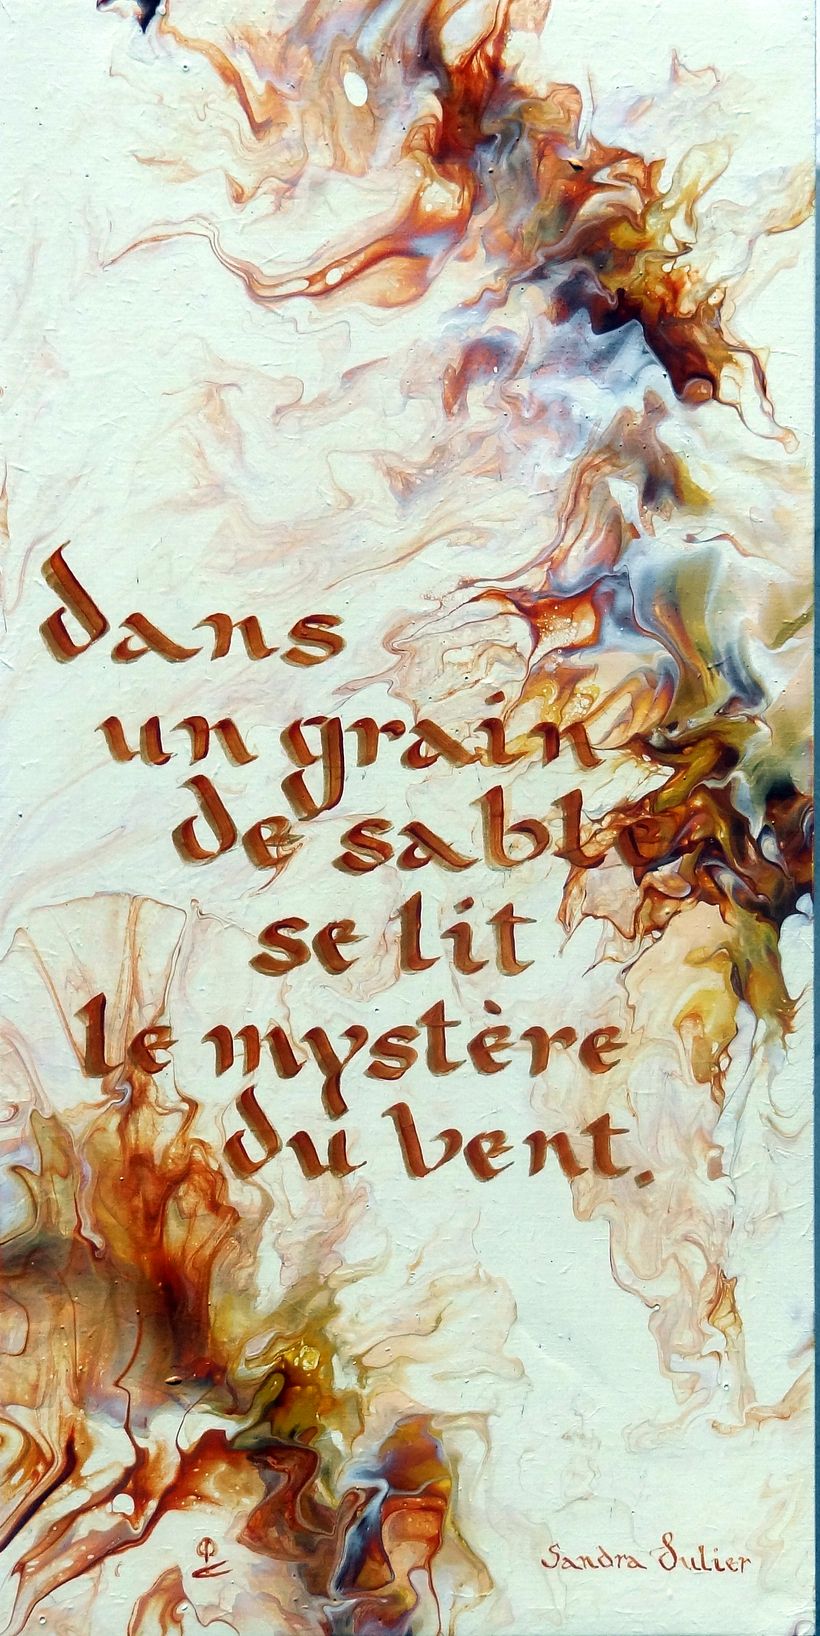 dans
un grain
de sable
se lit
le mystère
du vent.
Sandra Sulier